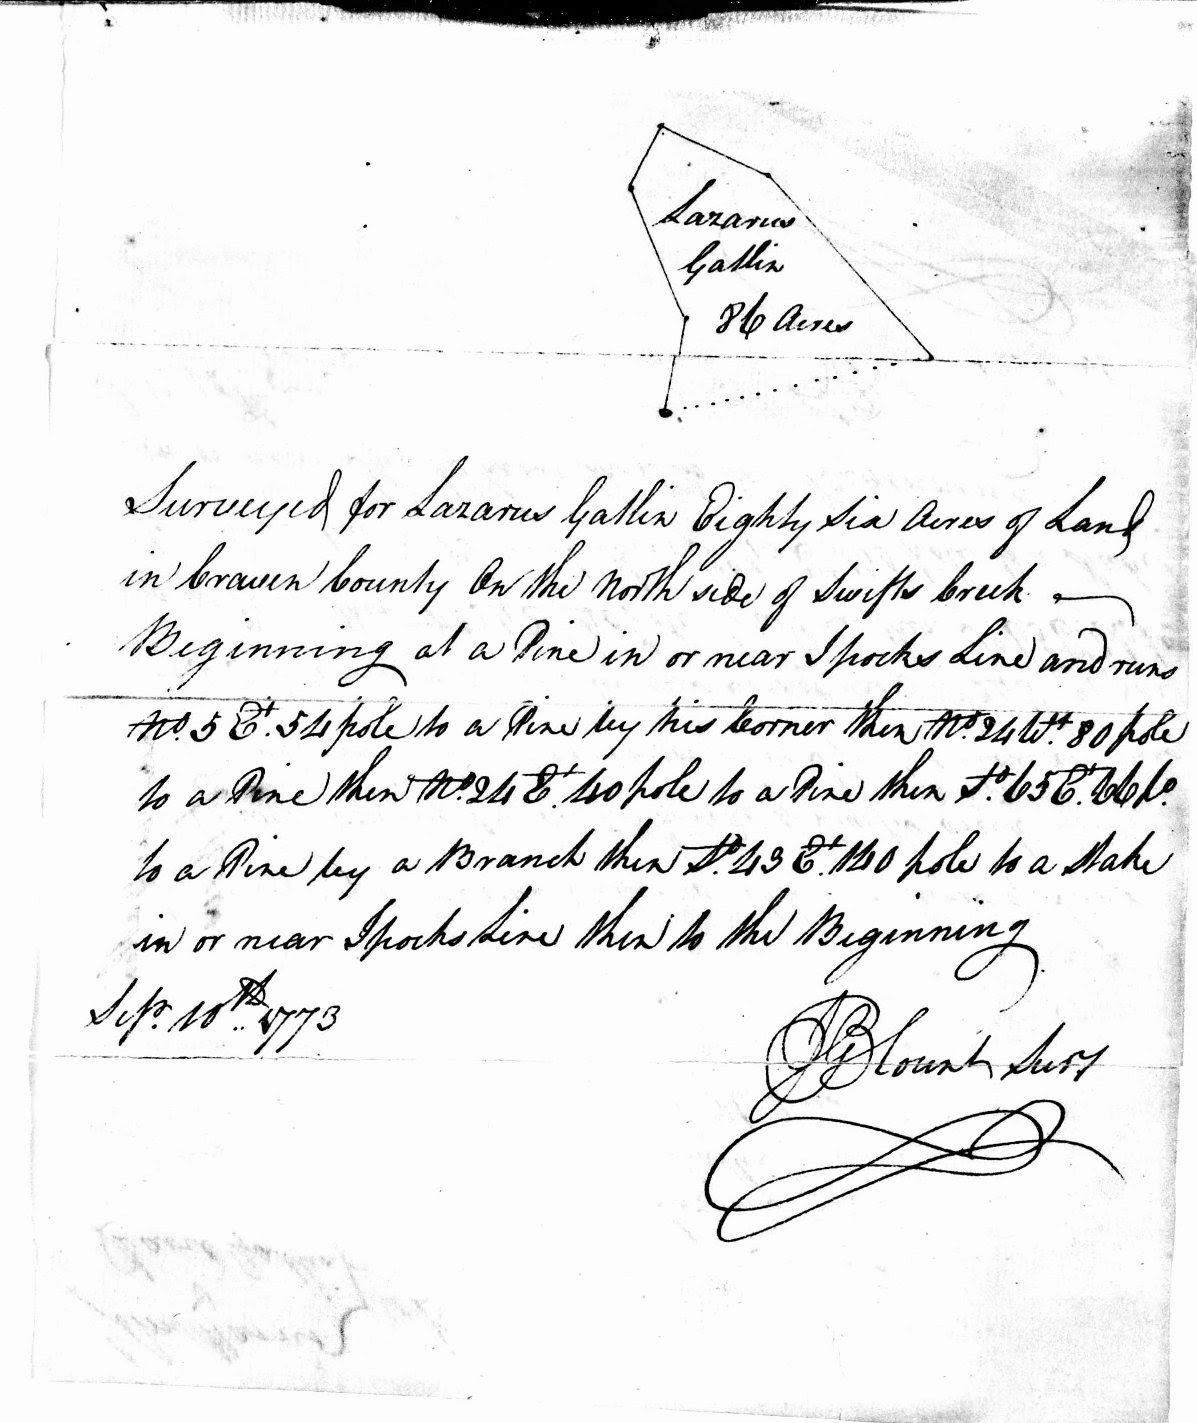 Lazarus
Gatlin
86 Acres
Surveyed for Lazarus Gatlin Eighty Six Acres of Land
in Craven County On the North side of Swifts Creek
Beginning at a Pine in or near Ipocks Line and runs
No. 5 Et. 54 pole to a Pine by his Corner then No. 24 Wt. 80 pole
to a Pine then No. 24 Et. 40 pole to a Pine then So. 65 Et. 66 po.
to a Pine by a Branch then So. 43 Et. 140 pole to a Stake
in or near Ipocks Line then to the Beginning
Sepr. 10th 1773
JGBlount Survr